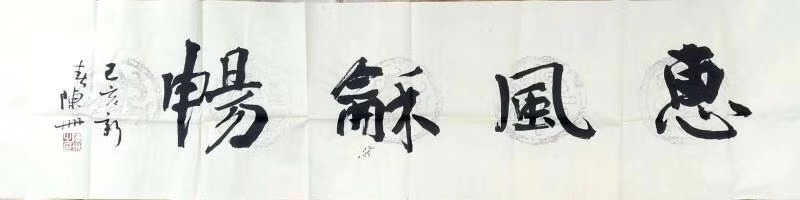 惠風龢暢
己亥新
春陳州